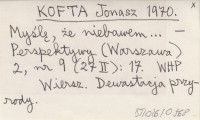 KOFTA Jonasz 1970.
Myślę, że niebawem... —
Perspektywy (Warszawa)
2, nr 9 (27 II): 17. WHP
Wiersz. Dewastacja przy-
rody.